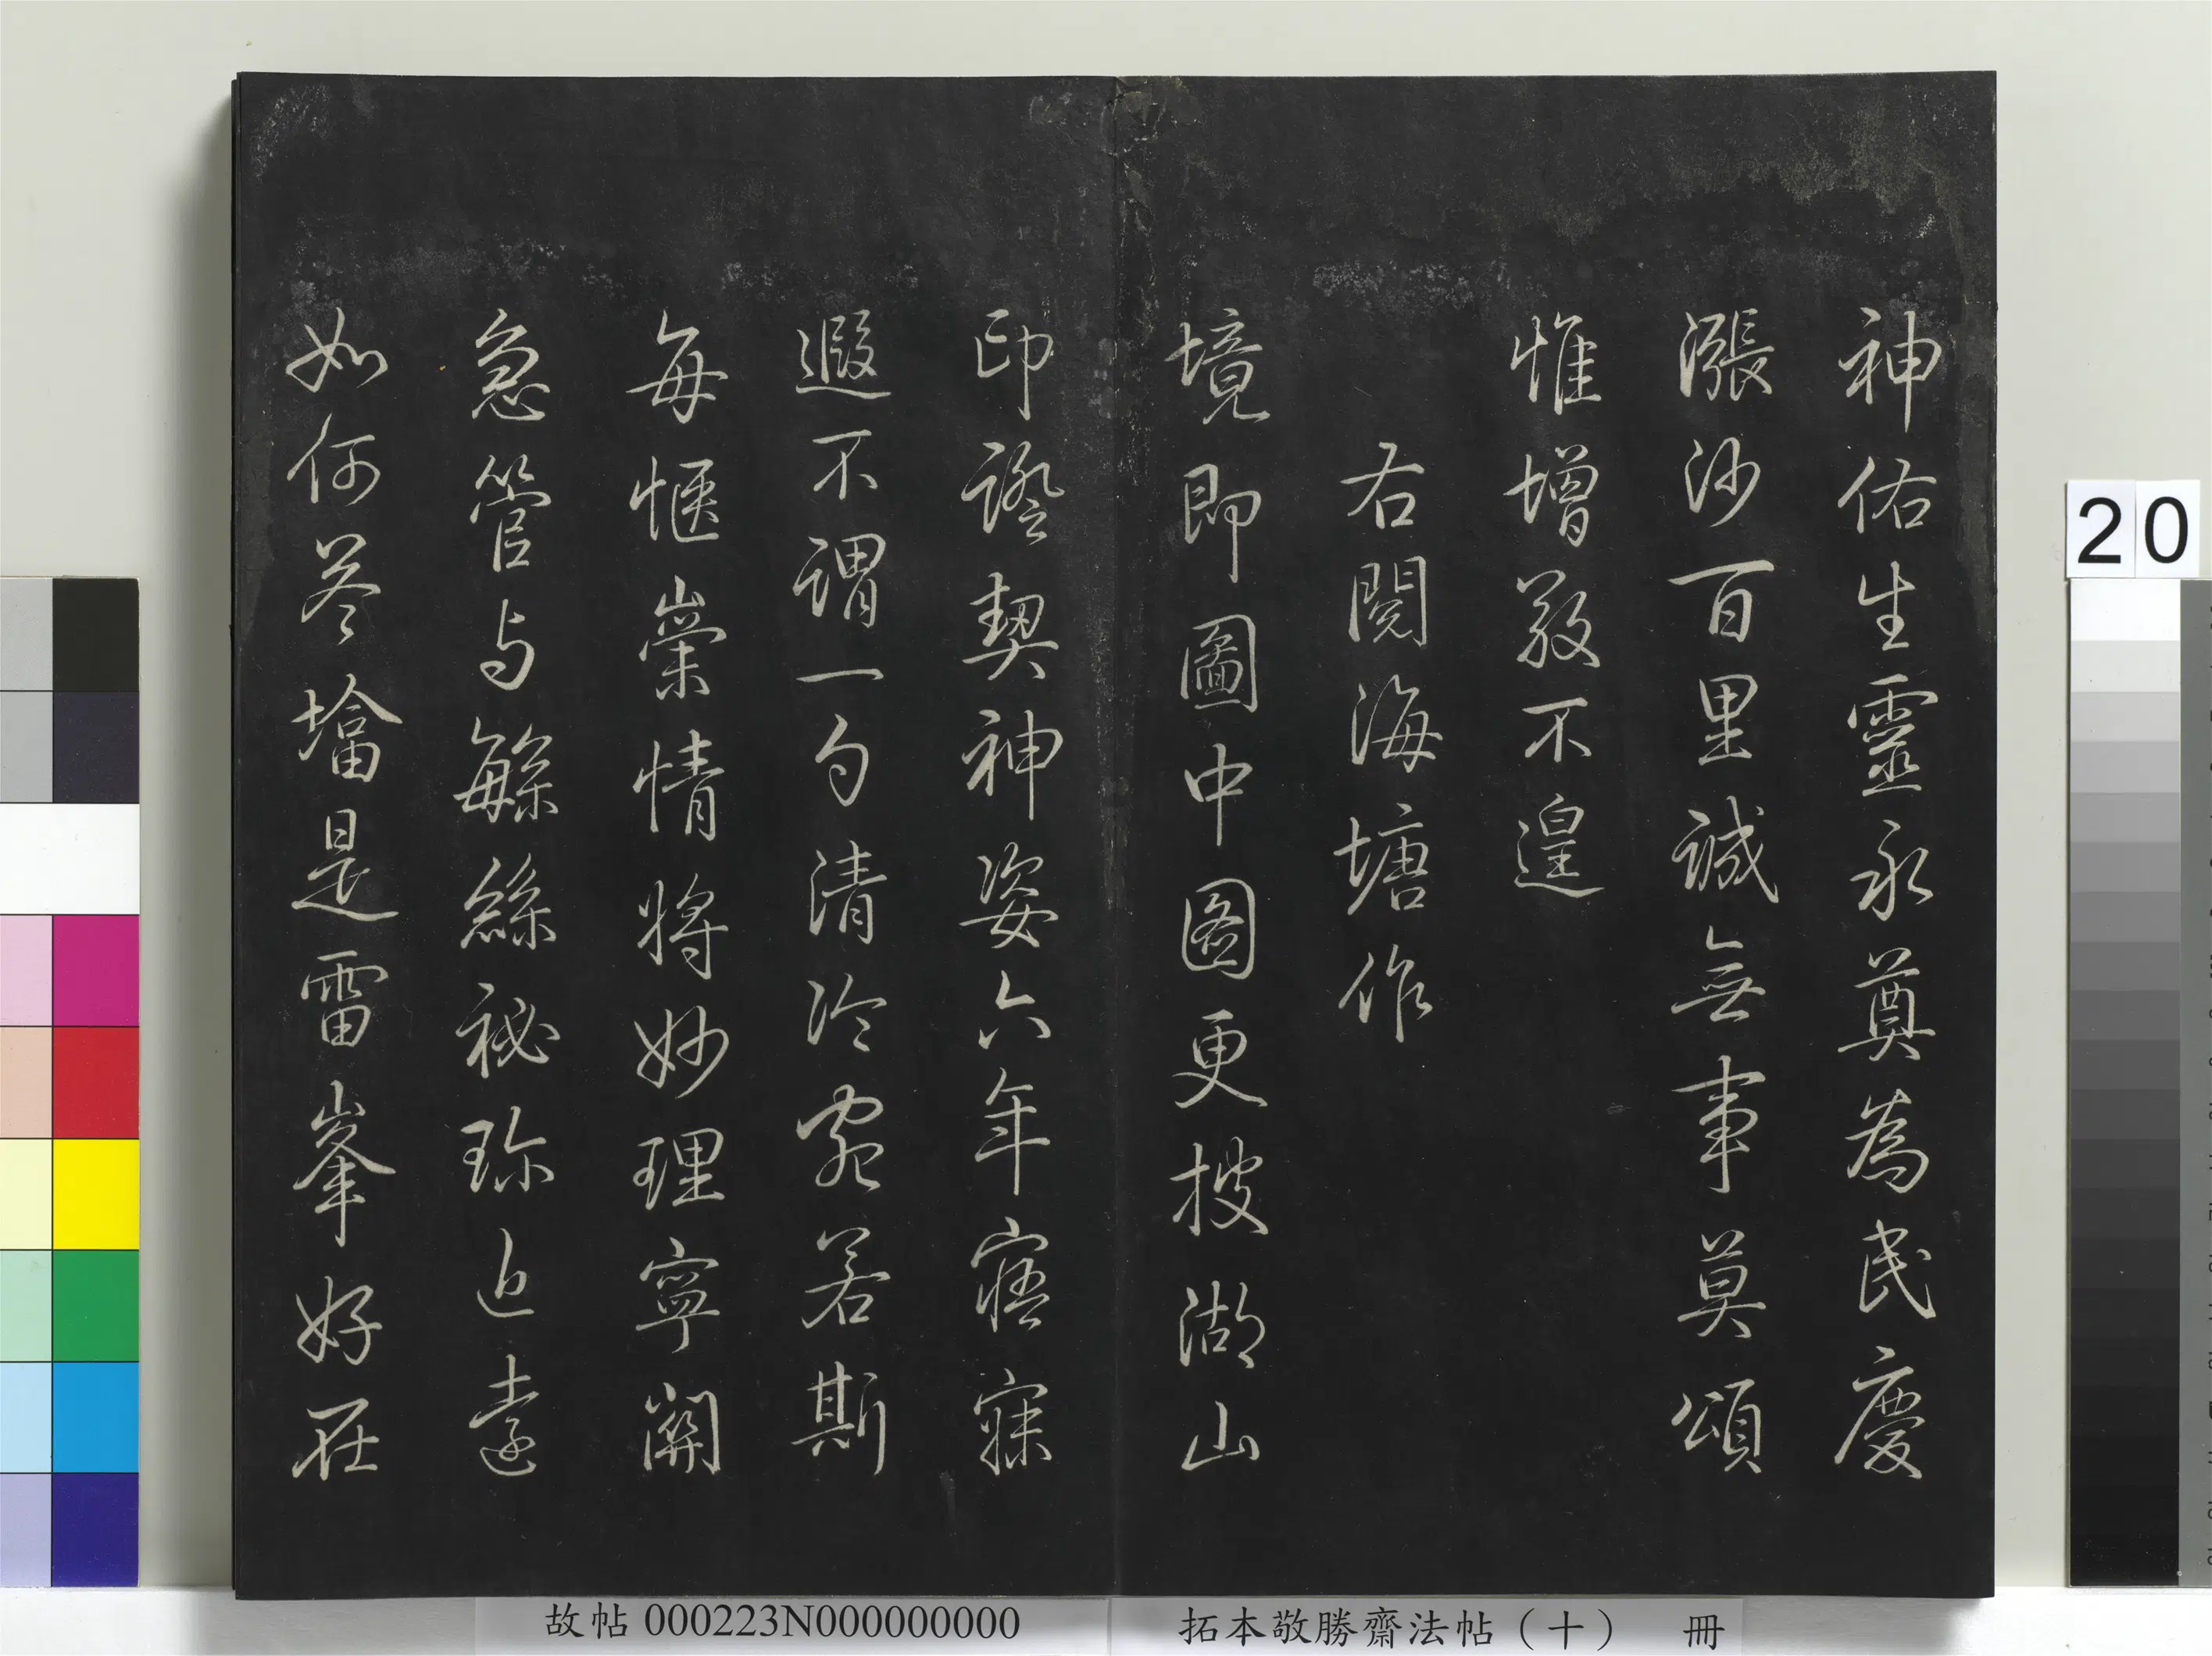 神佑生靈永奠為民慶
漲沙百里誠無事莫頌
惟增敬不遑
右閱海塘作
境即圖中圖更披湖山
印證契神姿六年寤寐
遐不謂一勺清泠宛若斯
每愜崇情將妙理寧關
急管与緐絲祕珍近遠
如何荅塔是雷峯好在
20
故帖 000223N000000000 拓本敬勝齋法帖（十） 冊